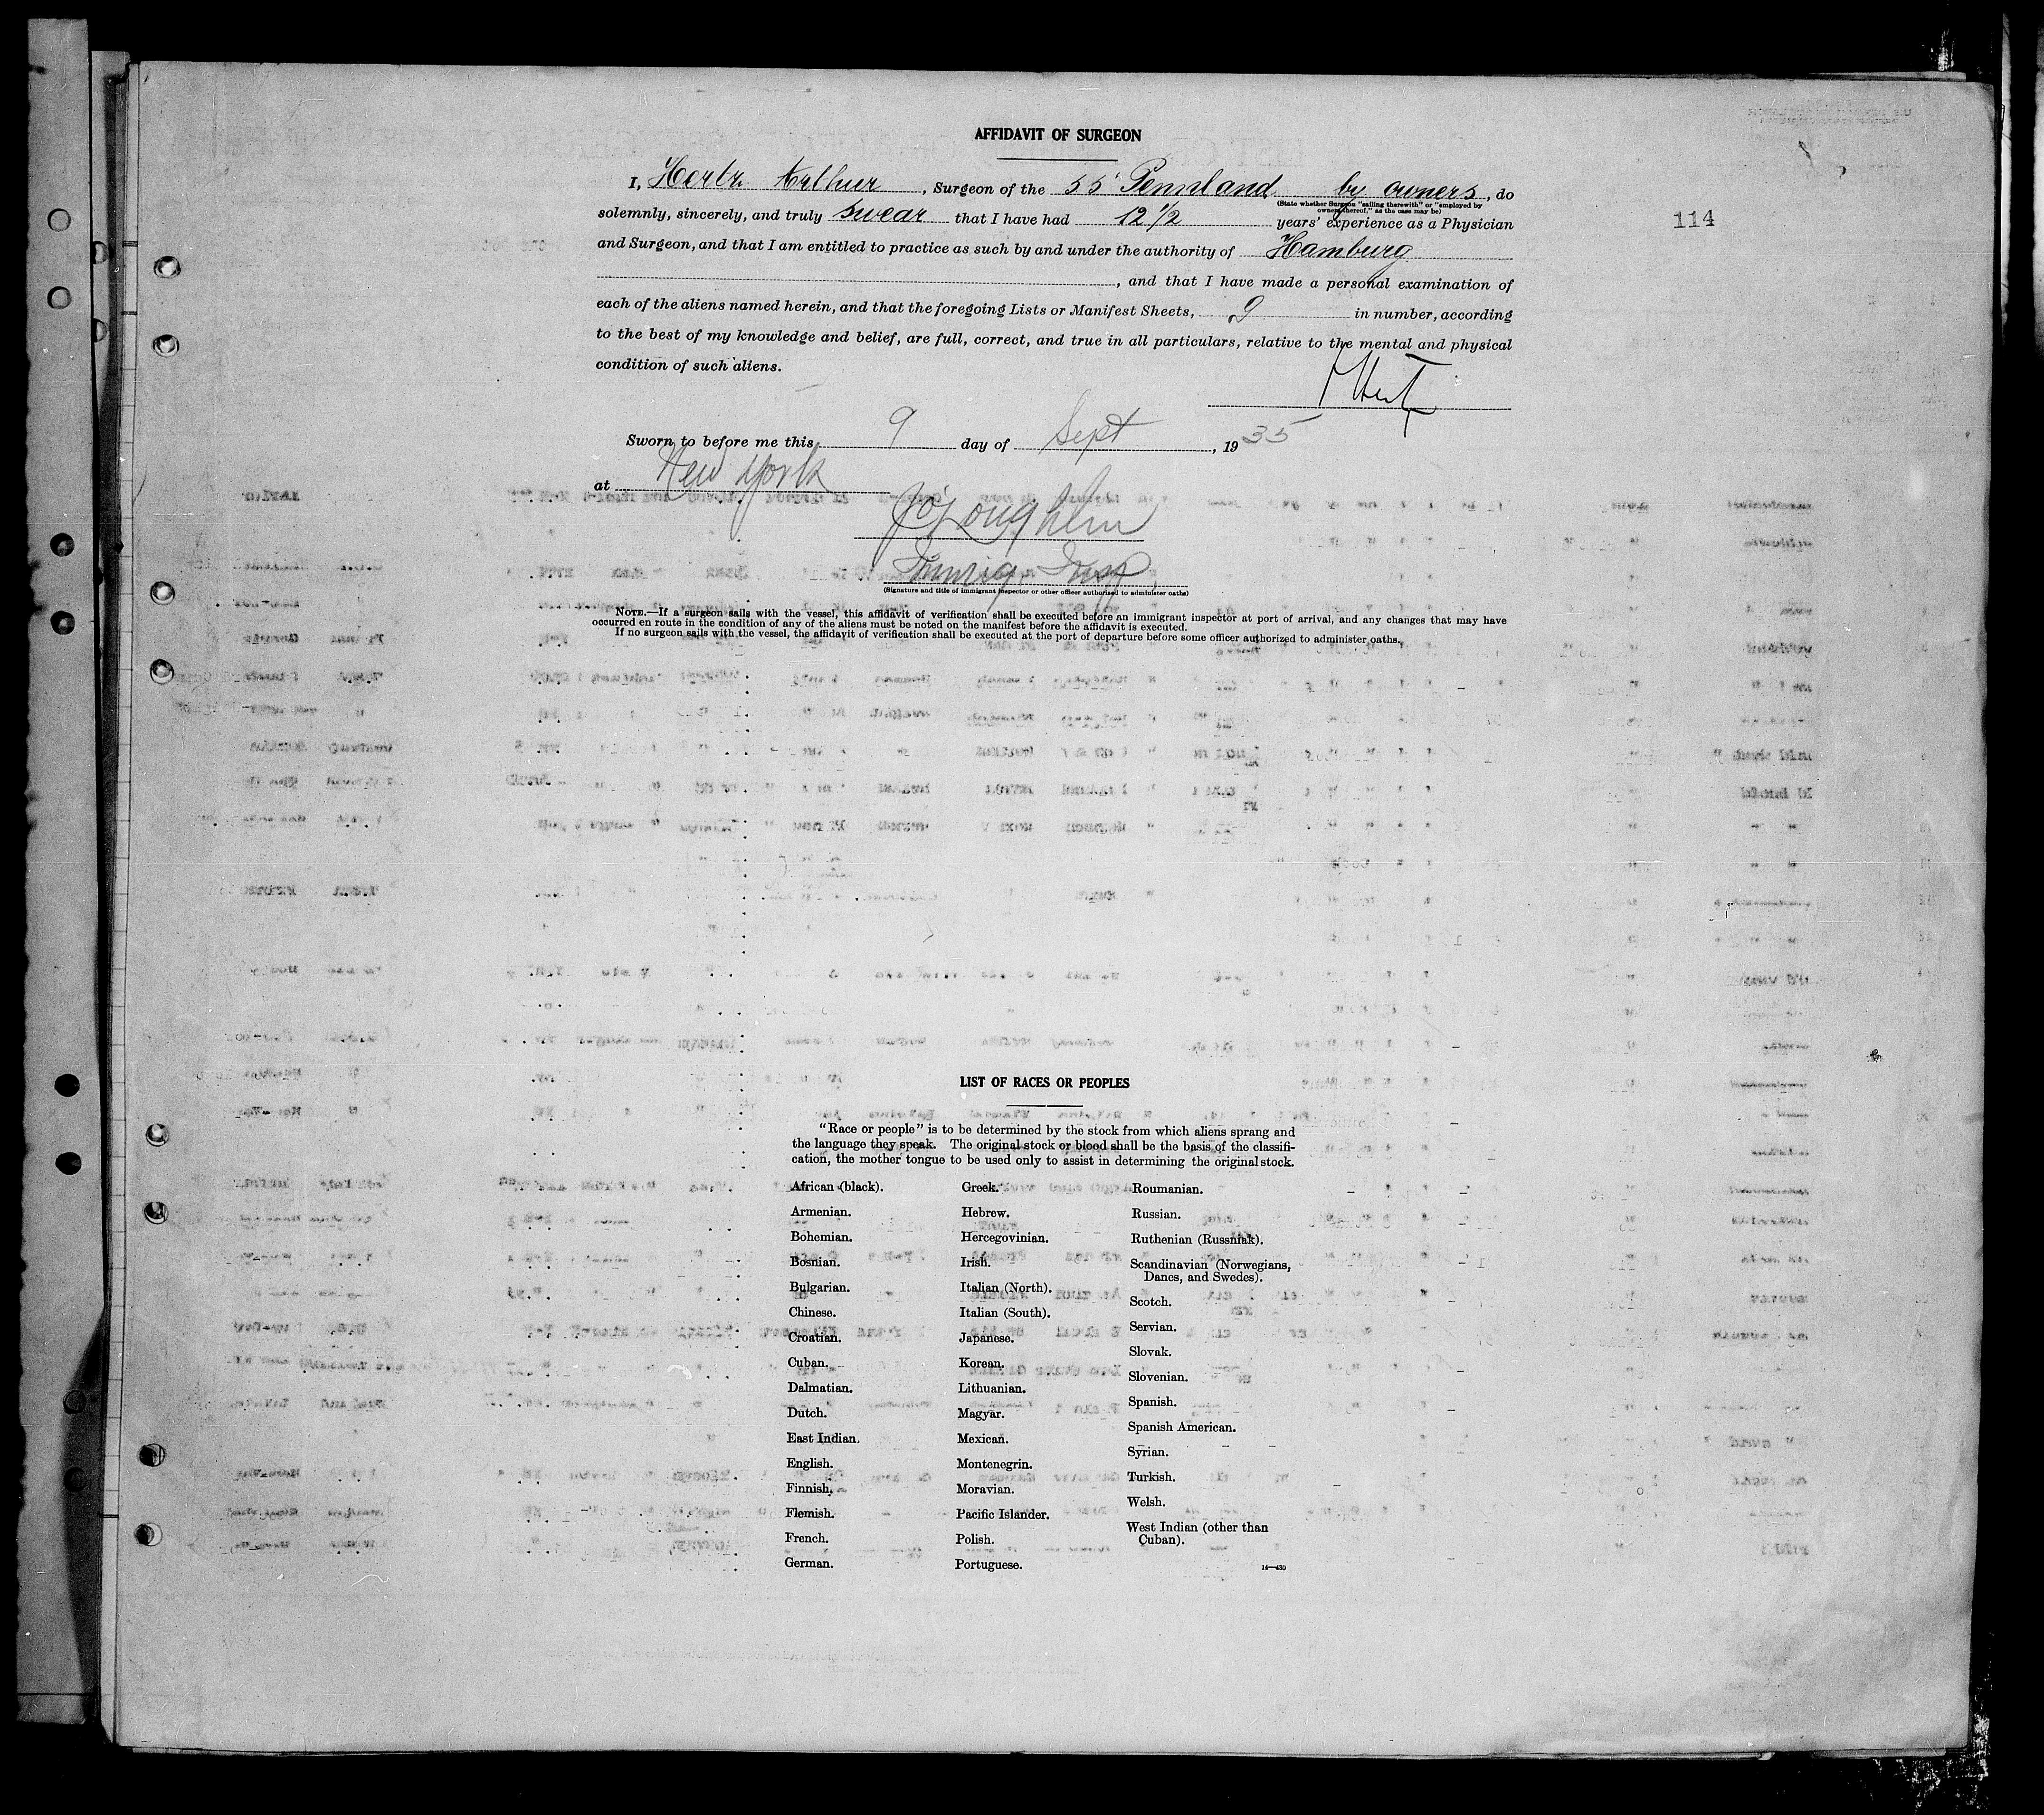 AFFIDAVIT OF SURGEON
114
I, Hertz Arthur, Surgeon of the SS Pennland by owners, do
(State whether Surgeon "sailing therewith" or "employed by
owners thereof," as the case may be)
solemnly, sincerely, and truly swear that I have had 12 1/2 years' experience as a Physician
and Surgeon, and that I am entitled to practice as such by and under the authority of Hamburg
, and that I have made a personal examination of
each of the aliens named herein, and that the foregoing Lists or Manifest Sheets, 9 in number, according
to the best of my knowledge and belief, are full, correct, and true in all particulars, relative to the mental and physical
condition of such aliens.
Sworn to before me this 9 day of Sept, 1935
at New York
Immig. Insp.
(Signature and title of immigrant inspector or other officer authorized to administer oaths)
NOTE.—If a surgeon sails with the vessel, this affidavit of verification shall be executed before an immigrant inspector at port of arrival, and any changes that may have
occurred en route in the condition of any of the aliens must be noted on the manifest before the affidavit is executed.
If no surgeon sails with the vessel, the affidavit of verification shall be executed at the port of departure before some officer authorized to administer oaths.
LIST OF RACES OR PEOPLES
"Race or people" is to be determined by the stock from which aliens sprang and
the language they speak. The original stock or blood shall be the basis of the classifi-
cation, the mother tongue to be used only to assist in determining the original stock.
African (black).
Armenian.
Bohemian.
Bosnian.
Bulgarian.
Chinese.
Croatian.
Cuban.
Dalmatian.
Dutch.
East Indian.
English.
Finnish.
Flemish.
French.
German.
Greek.
Hebrew.
Hercegovinian.
Irish.
Italian (North).
Italian (South).
Japanese.
Korean.
Lithuanian.
Magyar.
Mexican.
Montenegrin.
Moravian.
Pacific Islander.
Polish.
Portuguese.
Roumanian.
Russian.
Ruthenian (Russniak).
Scandinavian (Norwegians,
Danes, and Swedes).
Scotch.
Servian.
Slovak.
Slovenian.
Spanish.
Spanish American.
Syrian.
Turkish.
Welsh.
West Indian (other than
Cuban).
14—430